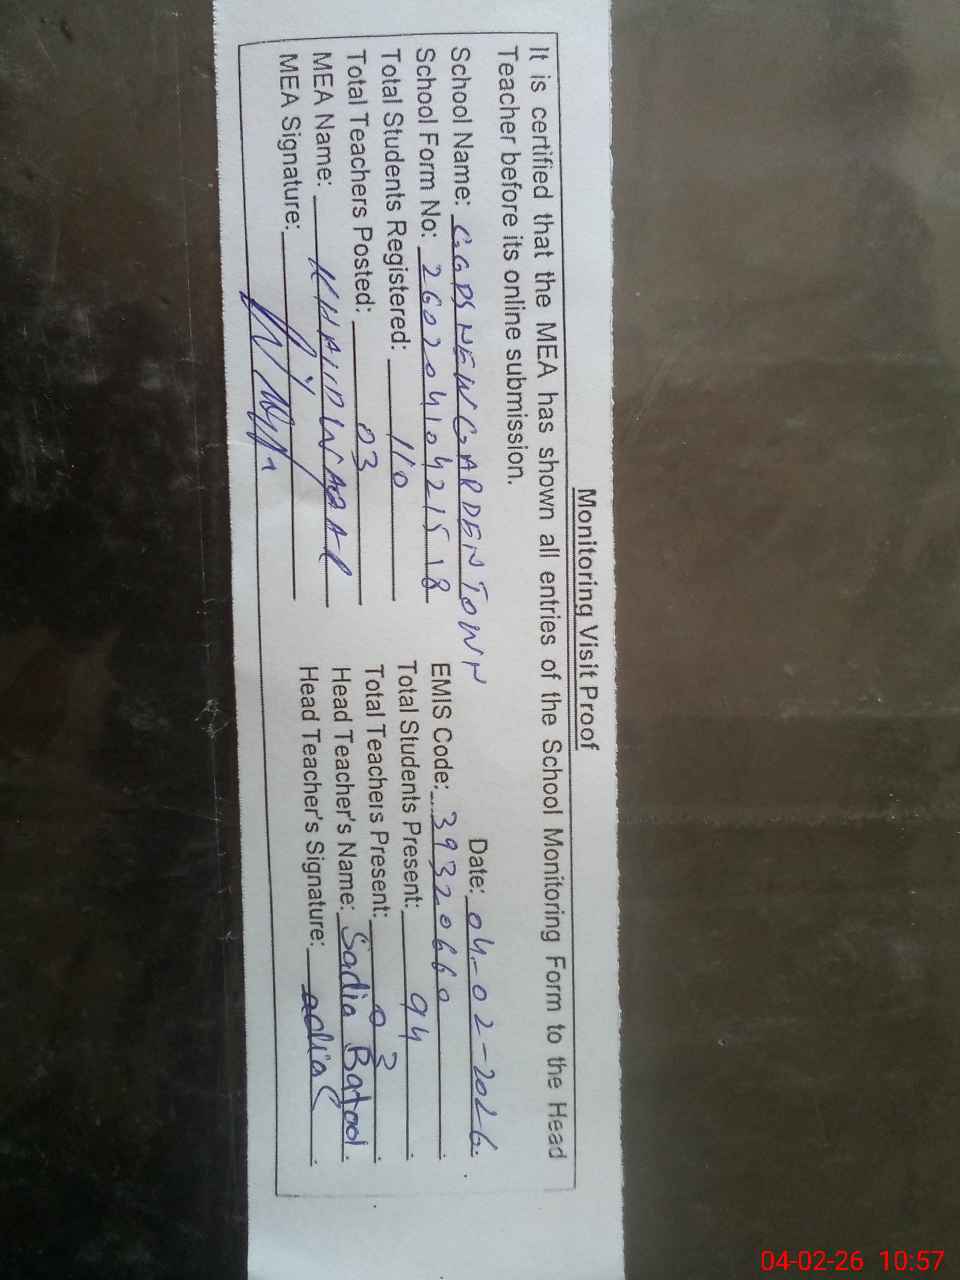 Monitoring Visit Proof
It is certified that the MEA has shown all entries of the School Monitoring Form to the Head
Teacher before its online submission.
Date: 04-02-2026
School Name: GGPS NEW GARDEN TOWN
School Form No: 26020410421518 EMIS Code: 39320660
Total Students Registered: 110 Total Students Present: 94
Total Teachers Posted: 03 Total Teachers Present: 03
MEA Name: KHALID Head Teacher's Name: Sadia Batool
MEA Signature: Head Teacher's Signature:
04-02-26 10:57